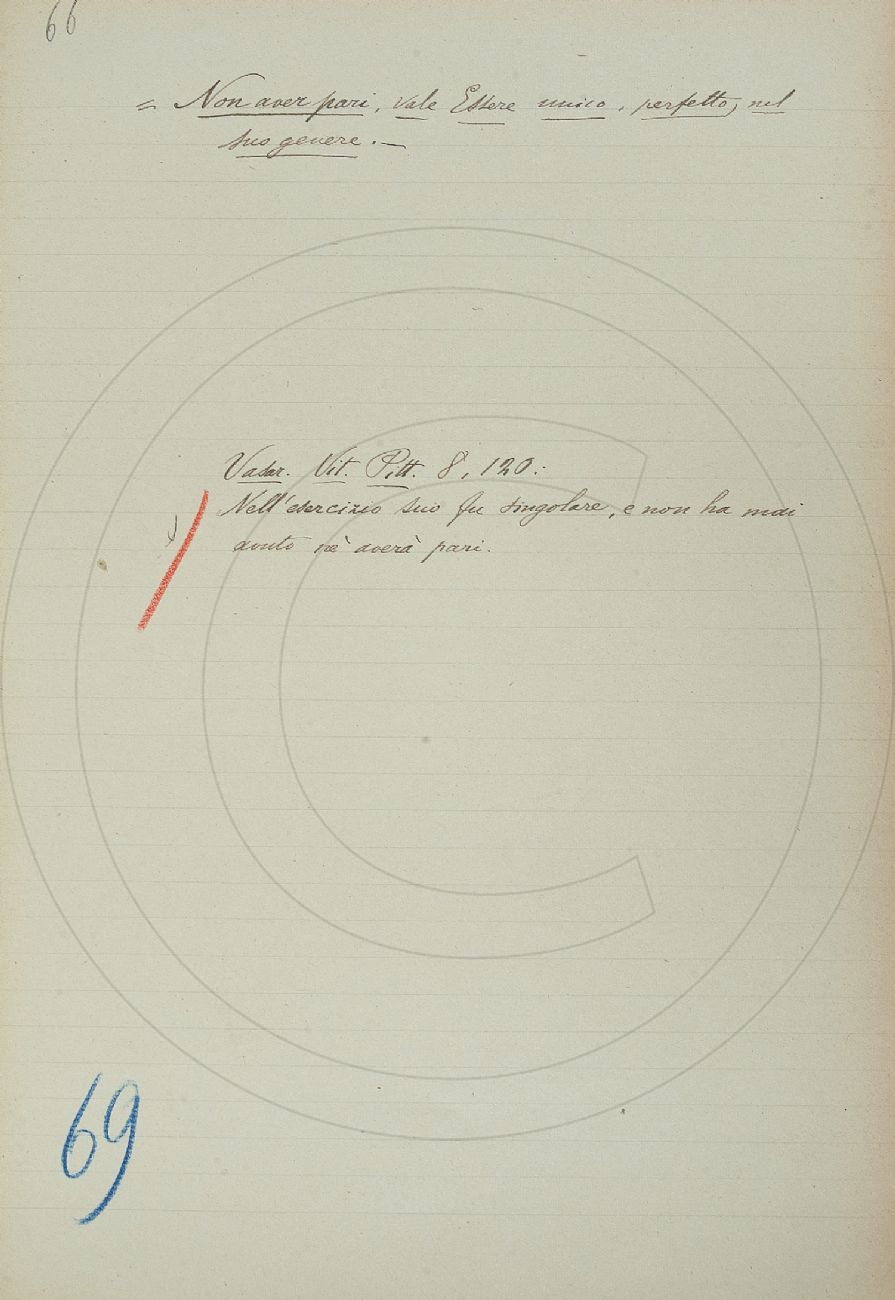 66
= Non aver pari, vale Essere unico, perfetto, nel
suo genere. —
Vasar. Vit. Pitt. 8, 120:
Nell'esercizio suo fu singolare, e non ha mai
avuto nè averà pari.
69